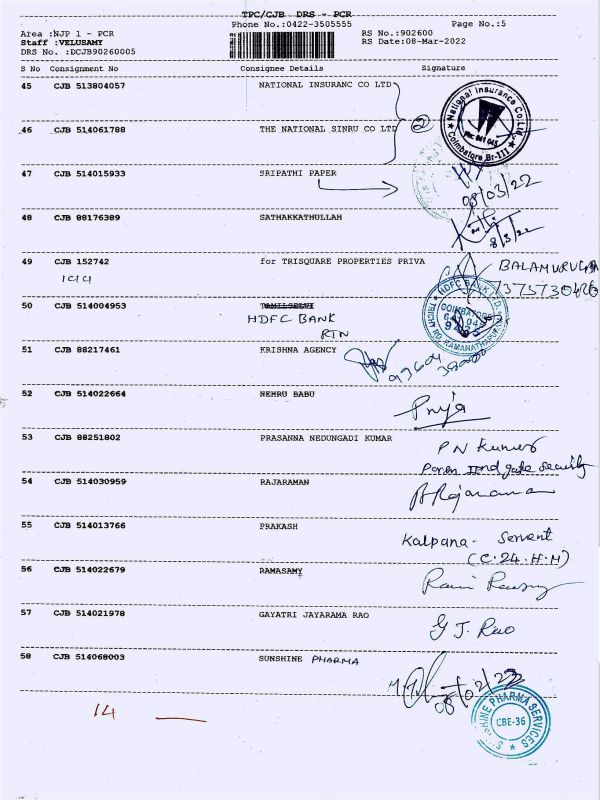 TPC/CJB DRS - PCR
Phone No.:0422-3505555 Page No.:5
Area :NJP 1 - PCR RS No.:902600
Staff :VELUSAMY RS Date:08-Mar-2022
DRS No. :DCJB90260005
S No Consignment No Consignee Details Signature
45 CJB 513804057 NATIONAL INSURANC CO LTD
National Insurance Co.Ltd. Coimbatore Br-III
46 CJB 514061788 THE NATIONAL SINRU CO LTD 2
47 CJB 514015933 SRIPATHI PAPER
08/03/22
48 CJB 88176389 SATHAKKATHULLAH
8/3/22
49 CJB 152742 for TRISQUARE PROPERTIES PRIVA BALAMURUGAN
HDFC BANK LTD. COIMBATORE TRICHY RD. RAMANATHAPURAM
50 CJB 514004953 TAMILSELVI
HDFC BANK
RTN
51 CJB 88217461 KRISHNA AGENCY
52 CJB 514022664 NEHRU BABU
Priya
53 CJB 88251802 PRASANNA NEDUNGADI KUMAR
PN Kumar
gate Security
54 CJB 514030959 RAJARAMAN
A Rajaraman
55 CJB 514013766 PRAKASH
Kalpana - Servent
(C.24.H.H)
56 CJB 514022679 RAMASAMY
57 CJB 514021978 GAYATRI JAYARAMA RAO
G J. Rao
58 CJB 514068003 SUNSHINE PHARMA
SUNSHINE PHARMA SERVICES CBE-36
14